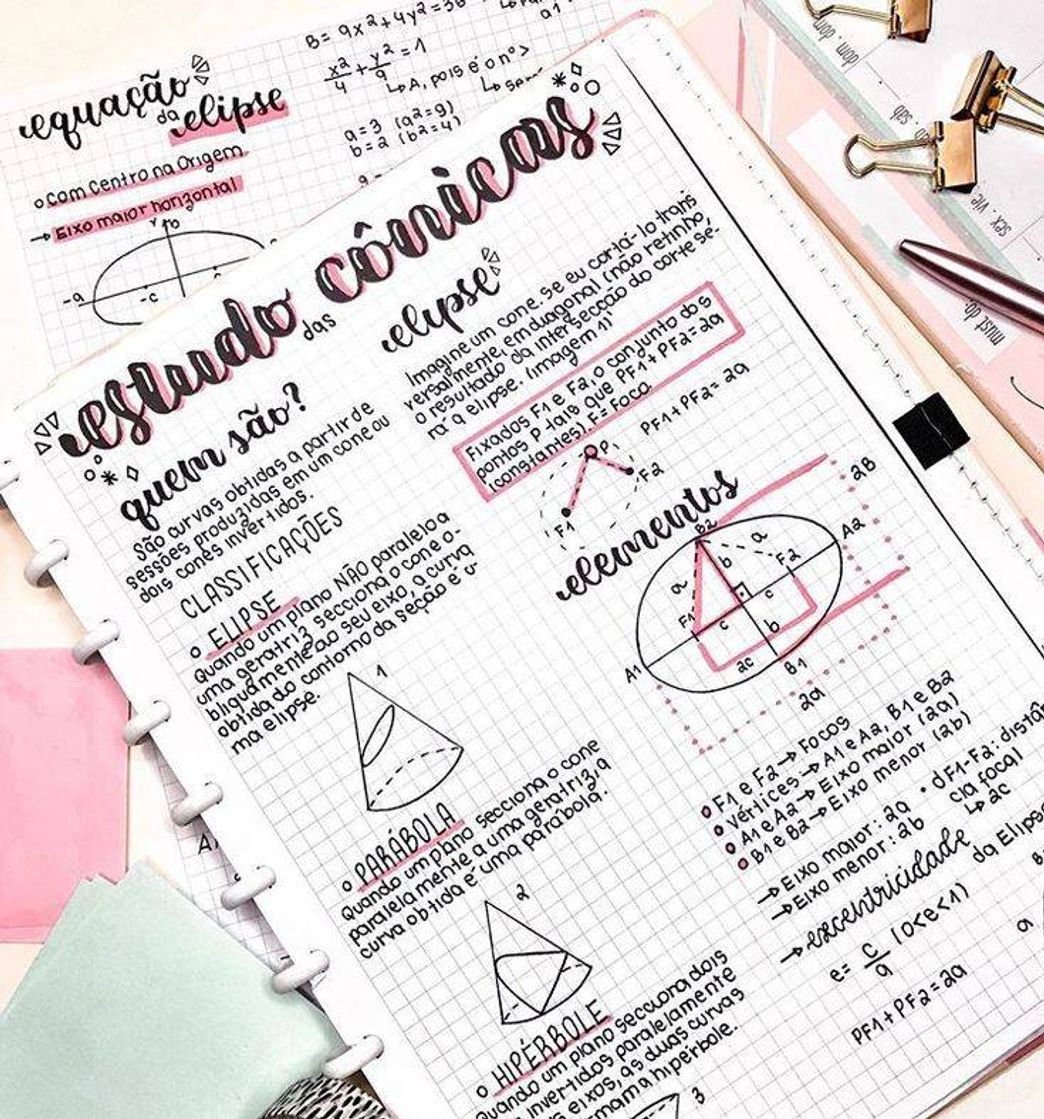 equação
da elipse
o com centro na origem
→ Eixo maior horizontal
y
b
-a
-c
B= 9x²+4y²=36
x²/4 + y²/9 = 1
↳ A, pois é o nº>
a=3 (a²=9)
b=2 (b²=4)
estudo das cônicas
quem são?
São curvas obtidas a partir de
sessões produzidas em um cone ou
dois cones invertidos.
CLASSIFICAÇÕES
o ELIPSE
Quando um plano NÃO paralelo a
uma geratriz secciona o cone o-
bliquamente ao seu eixo, a curva
obtida do contorno da seção é u-
ma elipse.
1
o PARÁBOLA
Quando um plano secciona o cone
paralelamente a uma geratriz, a
curva obtida é uma parábola.
2
o HIPÉRBOLE
Quando um plano secciona dois
invertidos paralelamente
s eixos, as duas curvas
rmam a hipérbole.
3
elipse
Imagine um cone. Se eu cortá-lo trans
versalmente, em diagonal (não retinho,
o resultado da intersecção do corte se-
rá a elipse. (imagem 1)
Fixados F1 e F2, o conjunto dos
pontos P tais que PF1+PF2=2a
(constantes). F= Foco.
P1
F2
F1
PF1+PF2=2a
elementos
B2
2B
A2
a
a
b
F2
F1
c
c
b
2c
A1
B1
2a
o F1 e F2 → Focos
o vértices → A1 e A2, B1 e B2
o A1 e A2 → Eixo maior (2a)
o B1 e B2 → Eixo menor (2b)
→ Eixo maior: 2a
→ Eixo menor: 2b
• dF1-F2: distân
cia focal
↳ 2c
→ excentricidade
da Elipse
e= c/a (0<e<1)
PF1+PF2=2a
a
dom
sab
sex . vie
must do: